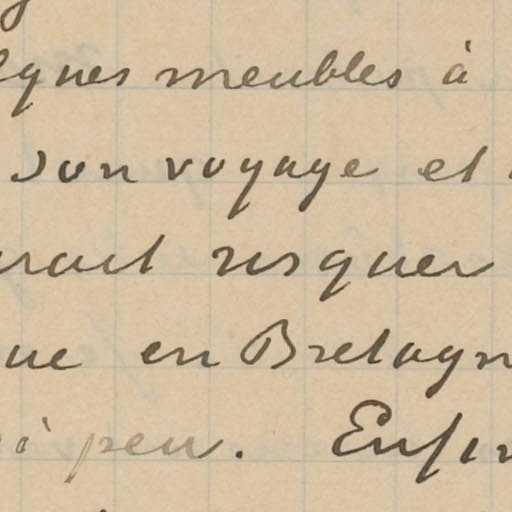 lques meubles à
son voyage et
rait risquer
que en Bretagn
à peu. Enfin